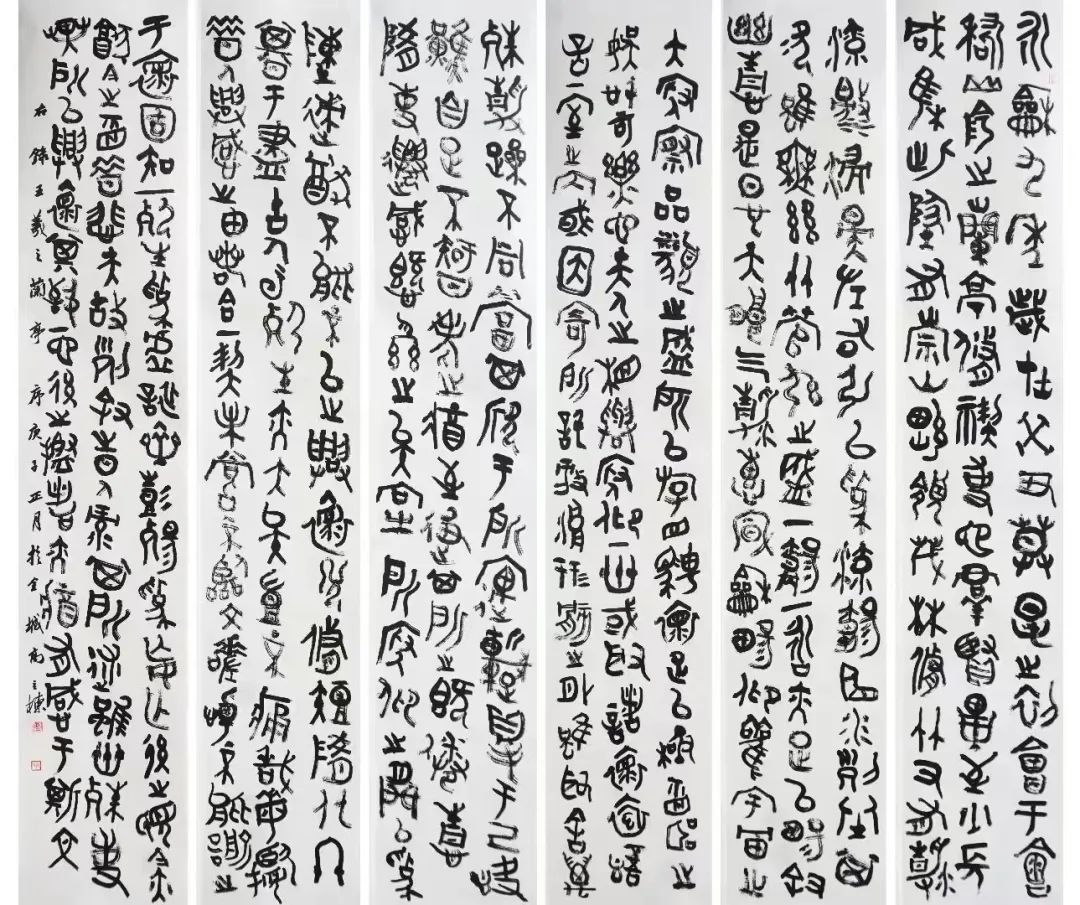 永和九年歲在癸丑暮春之初會于會
稽山陰之蘭亭修禊事也羣賢畢至少長
咸集此地有崇山峻領茂林修竹又有清
流激湍映帶左右引以為流觴曲水列坐其
次雖無絲竹管弦之盛一觴一詠亦足以暢敘
幽情是日也天朗气清惠風和暢仰觀宇宙之
大俯察品類之盛所以游目騁懷足以極視聽之
娛信可樂也夫人之相與俯仰一世或取諸懷抱悟
言一室之內或因寄所託放浪形骸之外雖取舍萬
殊靜躁不同當其欣于所遇暫得于己快
然自足不知老之將至及其所之既倦情
隨事遷感慨繫之矣向之所欣俯仰之間以為
陳迹猶不能不以之興懷況脩短隨化終
期于盡古人云死生亦大矣豈不痛哉每攬
昔人興感之由若合一契未嘗不臨文嗟悼不能喻之
于懷固知一死生為虛誕齊彭殤為妄作後之視今亦
猶今之視昔悲夫故列敘時人錄其所述雖世殊事
異所以興懷其致一也後之攬者亦將有感于斯文
右錄王羲之蘭亭序庚子正月於金城高